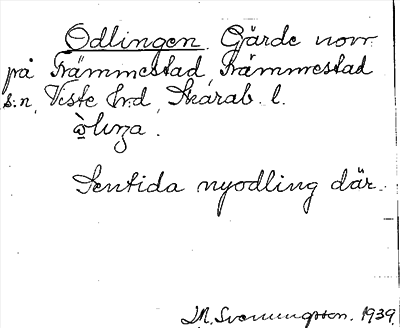 Odlingen. Gärde norr
på Främmestad, Främmestad
s:n, Viste hrd, Skarab. l.
Sentida nyodling där.
M. Svenungsson. 1939.